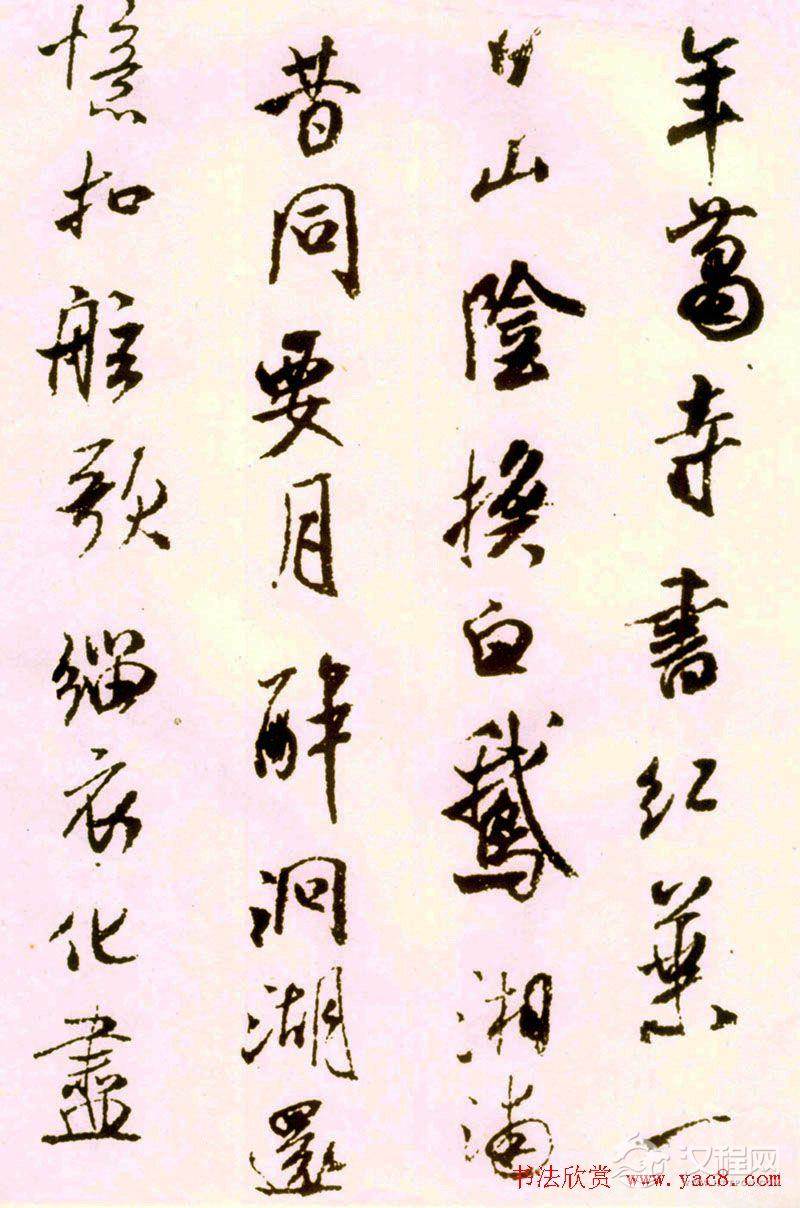 年萬寺書紅葉一
日山陰換白鵝湘浦
昔同要月醉洞湖還
憶扣舷歌緇衣化盡
汉程网
书法欣赏 www.yac8.com